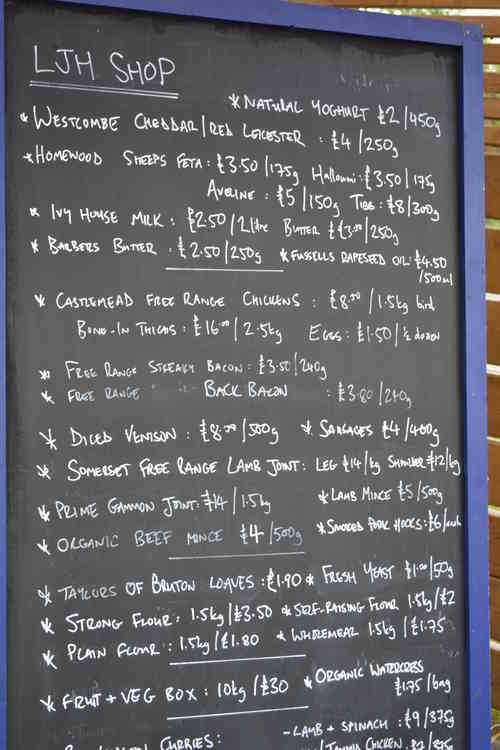 LJH SHOP
* NATURAL YOGHURT £2/450g
* WESTCOMBE CHEDDAR/RED LEICESTER : £4/250g
* HOMEWOOD SHEEPS FETA : £3.50/175g HALLOUMI : £3.50/175g
AVELINE : £5/150g TIBB : £8/300g
* IVY HOUSE MILK : £2.50/2Litre BUTTER £3.20/250g
* BARBERS BUTTER . £2.50/250g * FUSSELLS RAPESEED OIL : £4.50
/500ml
* CASTLEMEAD FREE RANGE CHICKENS : £8.00/1.5kg bird
BONE-IN THIGHS : £16.00/2.5kg EGGS : £1.50/½ dozen
* FREE RANGE STREAKY BACON : £3.50/240g
* FREE RANGE BACK BACON : £3.80/240g
* DICED VENISON : £8.00/500g * SAUSAGES £4/400g
* SOMERSET FREE RANGE LAMB JOINT : LEG £14/kg SHOULDER £12/kg
* PRIME GAMMON JOINT : £14/1.5kg * LAMB MINCE £5/500g
* ORGANIC BEEF MINCE £4/500g * SMOKED PORK HOCKS : £6/each
* TAYLORS OF BRUTON LOAVES : £1.90 * FRESH YEAST £1.00/50g
* STRONG FLOUR : 1.5kg/£3.50 * SELF-RAISING FLOUR 1.5kg/£2
* PLAIN FLOUR : 1.5kg/£1.80 * WHOLEMEAL 1.5kg/£1.75
* FRUIT + VEG BOX : 10kg/£30 * ORGANIC WATERCRESS
£1.75/bag
CURRIES : - LAMB + SPINACH : £9/375g
CHICKEN